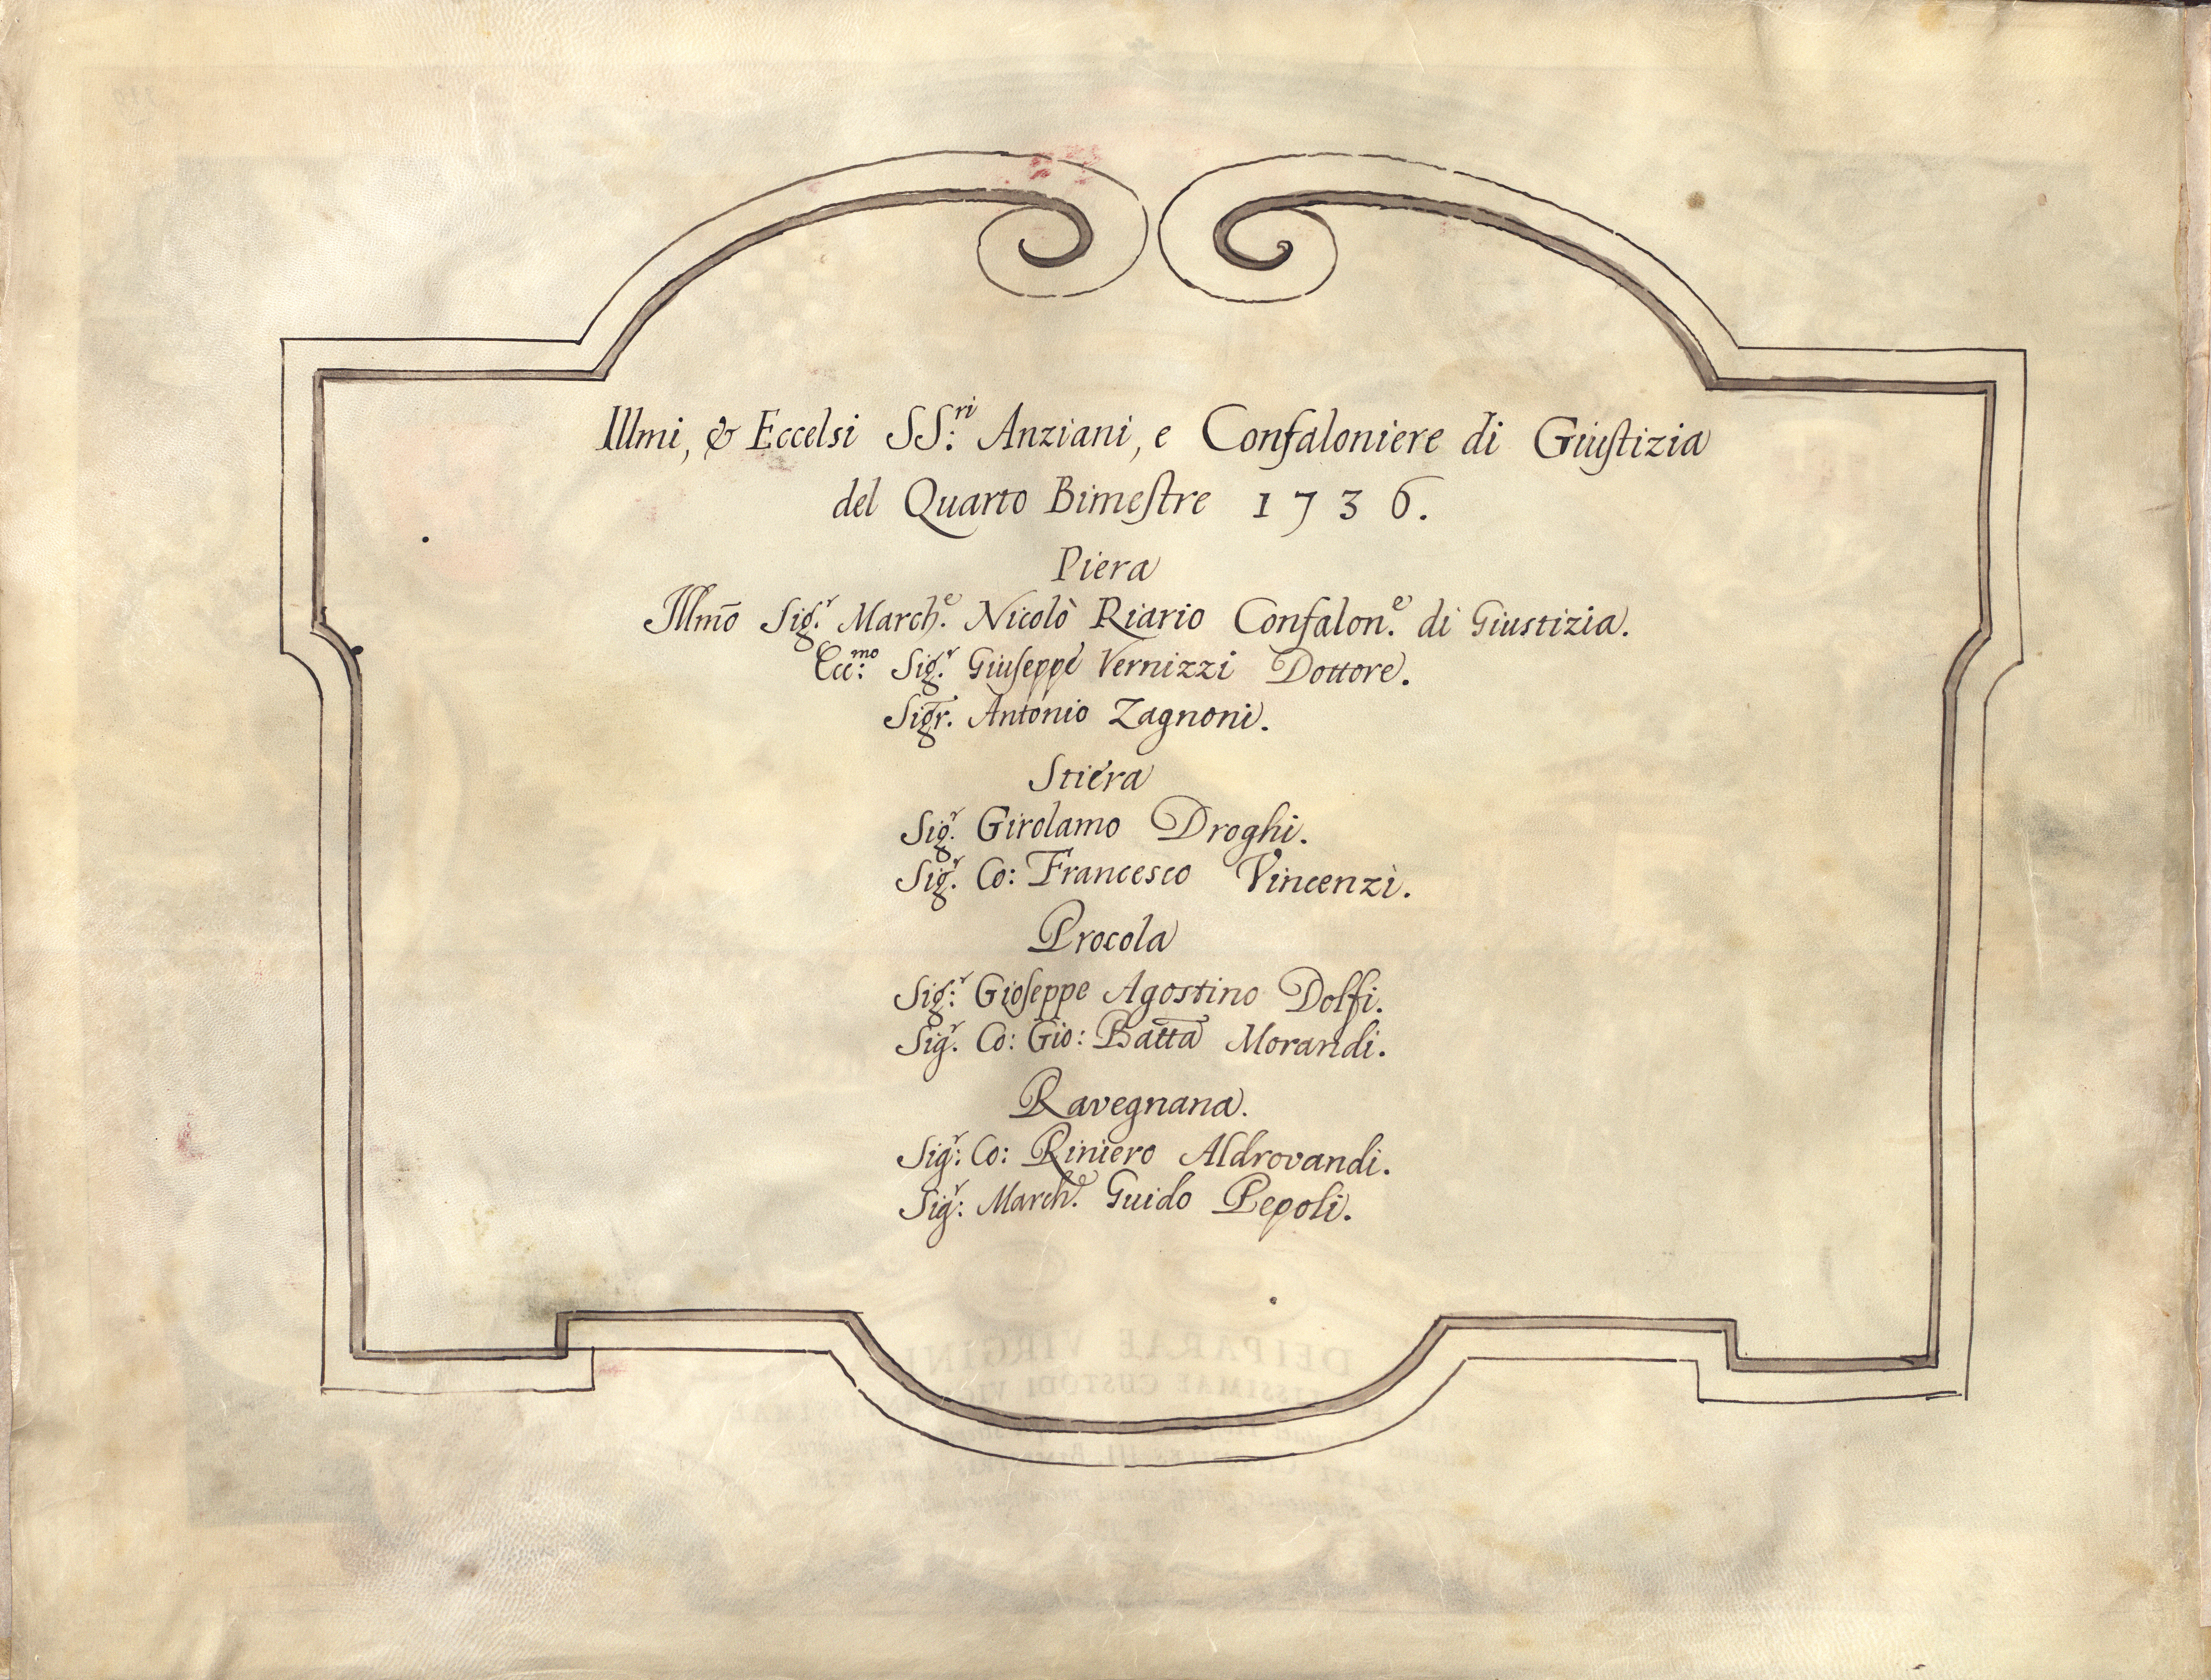 Illmi, & Eccelsi SS:ri Anziani, e Confaloniere di Giustizia
del Quarto Bimestre 1736.
Piera
Illm̄o Sig.r March.e Nicolò Riario Confalon.e di Giustizia.
Ecc:mo Sig.r Giuseppe Vernizzi Dottore.
Sigr. Antonio Zagnoni.
Stiera
Sig.r Girolamo Droghi.
Sig.r Co: Francesco Vincenzi.
Procola
Sig:r Gioseppe Agostino Dolfi.
Sig.r Co: Gio: Batta Morandi.
Ravegnana.
Sig:r Co: Riniero Aldrovandi.
Sig:r March.e Guido Pepoli.
DEIPARAE VIRGINI
CUSTODI